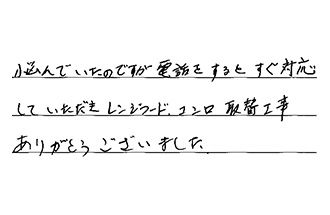 悩んでいたのですが電話をするとすぐ対応
していただきレンジフード、コンロ取替工事
ありがとうございました